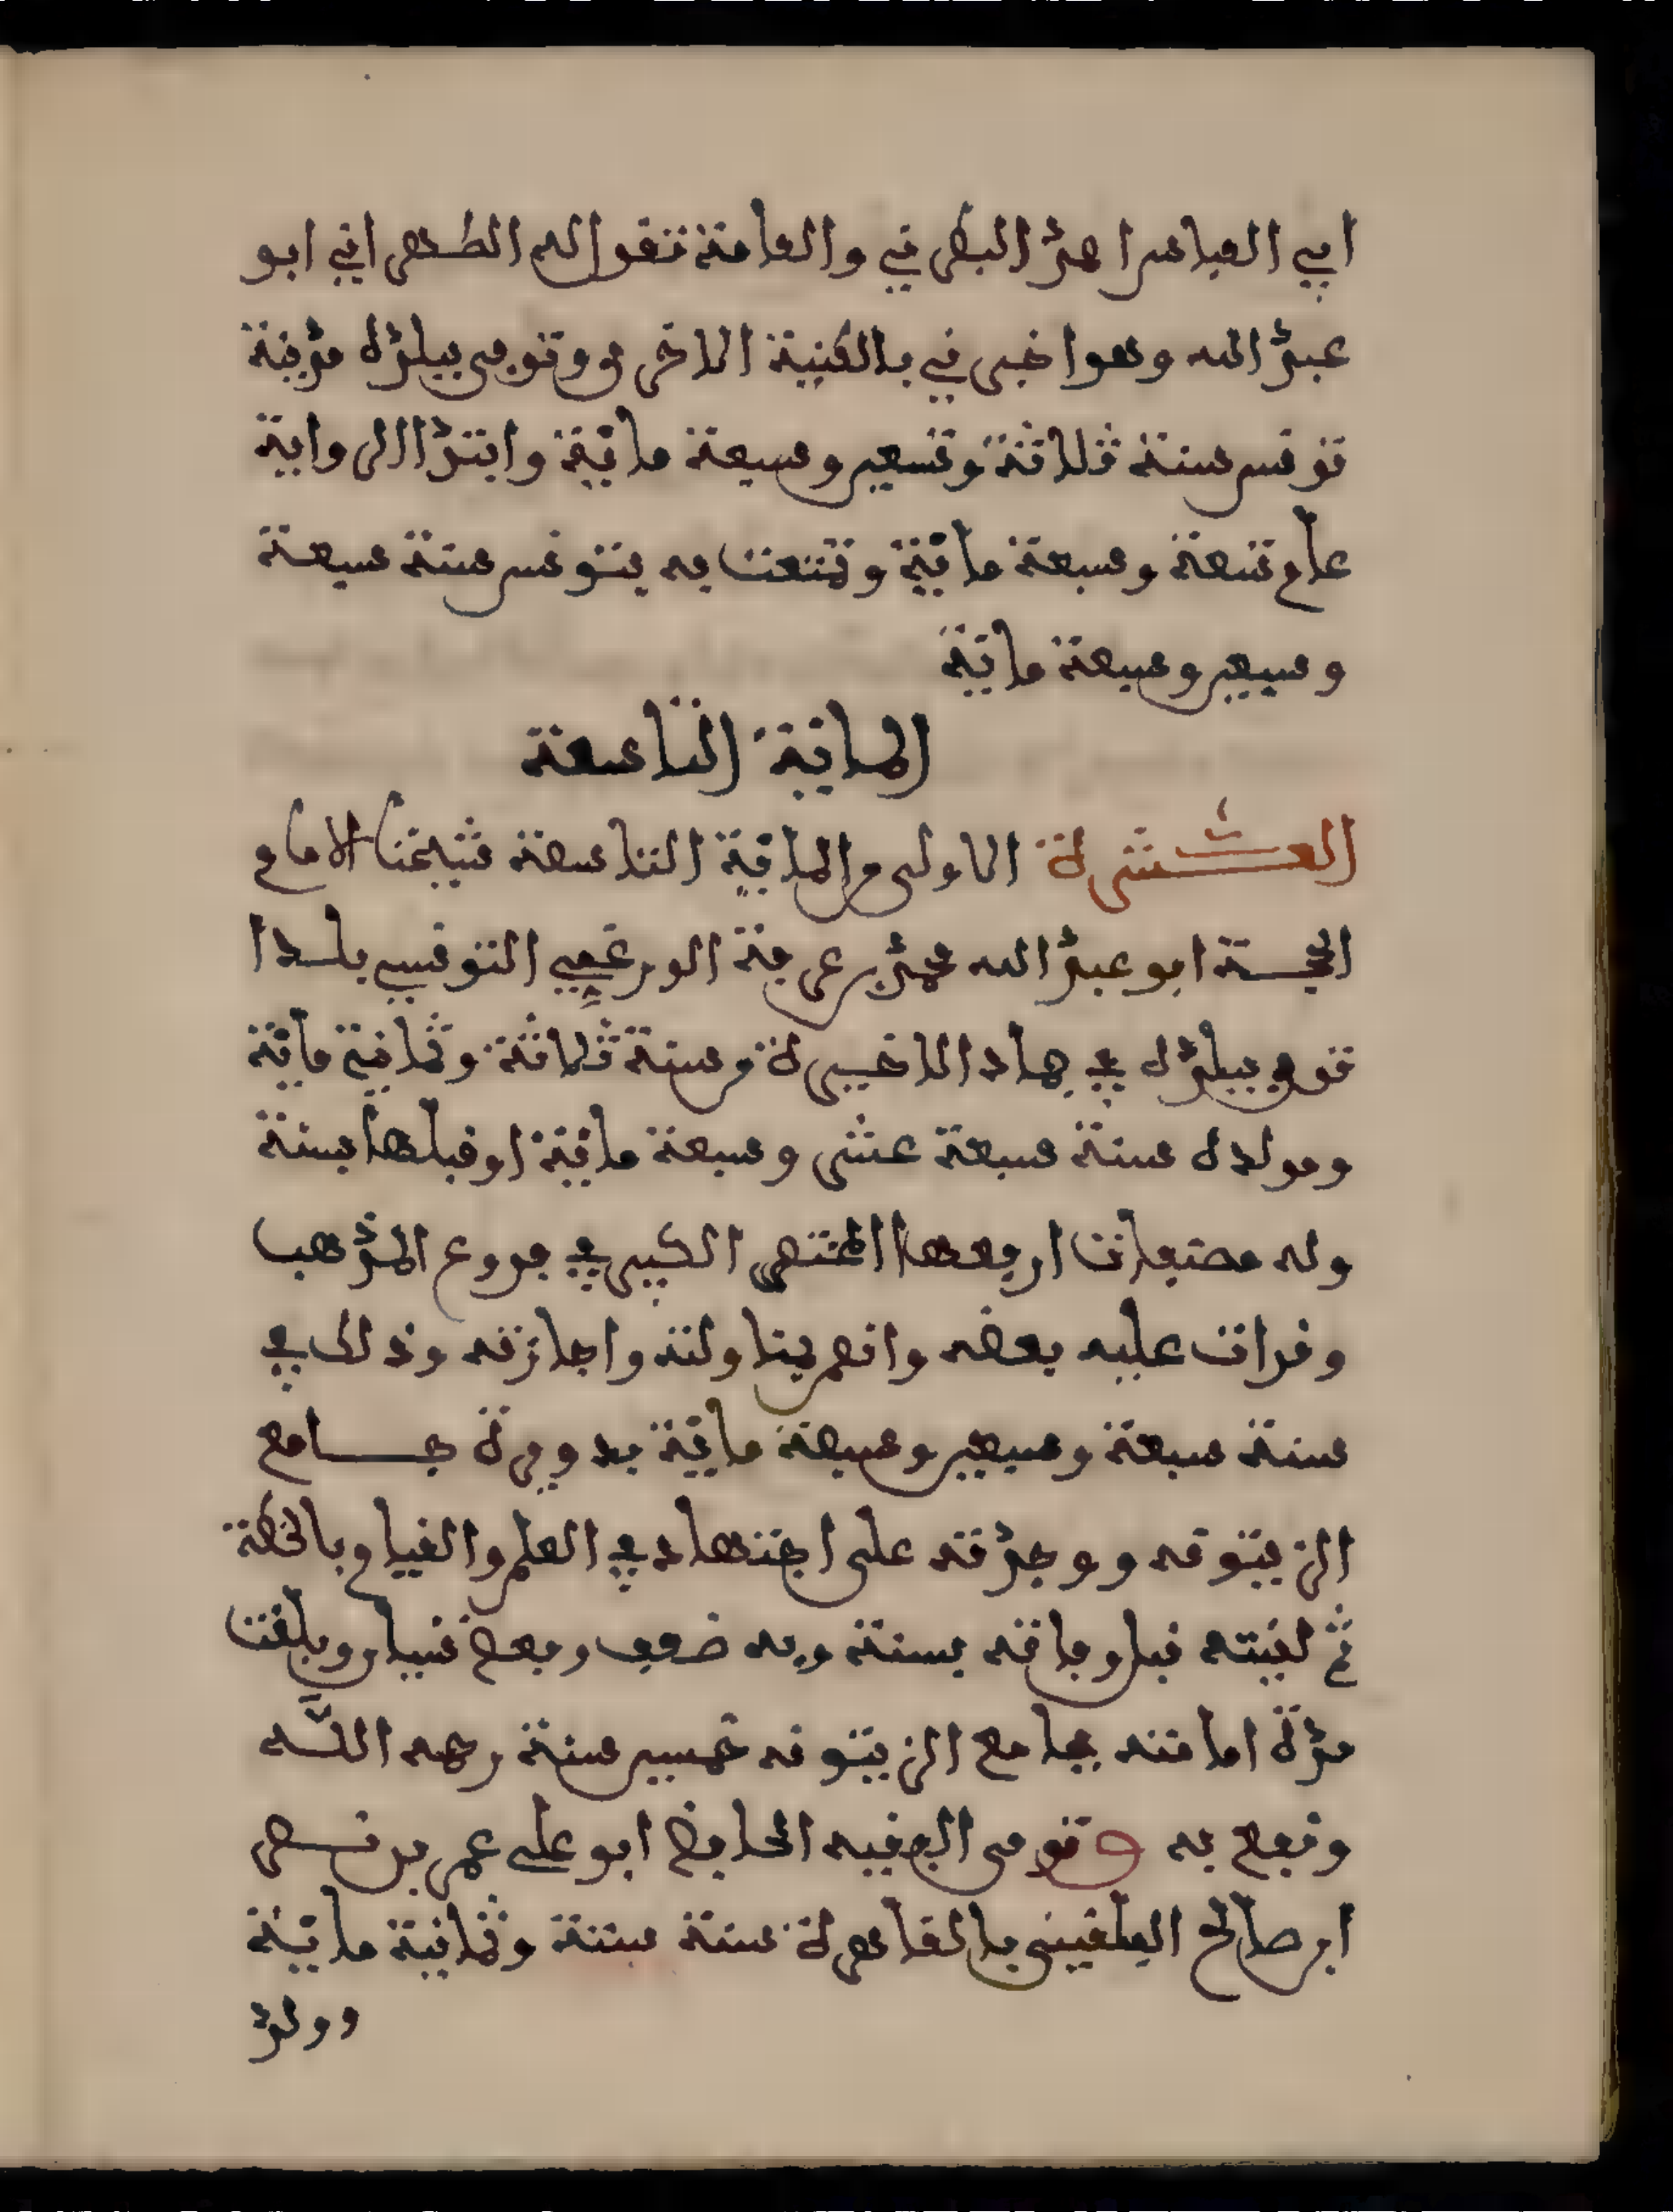 ابي العباس احمد البطرني والعامة تقول له الطهراني ابو
عبد الله وهو اخبرني بالكنية الاخرى وتوفي ببلده مدينة
تونس سنة ثلاثة وتسعين وسبعة ماية وابتدا الرواية
عام تسعة وسبعة ماية وتمتعت به بتونس سنة سبعة
وسبعين وسبعة ماية
الماية التاسعة
العشرة الاولى من الماية التاسعة شيخنا الامام
الحجة ابو عبد الله محمد بن عرفة الورغمي التونسي بلدا
توفي ببلده في جماد الاخيرة من سنة ثلاثة وثمانية ماية
ومولده سنة سبعة عشر وسبعة ماية او قبلها بسنة
وله مصنفات ارفعها المختصر الكبير في فروع المذهب
وقرات عليه بعضه وانعم بمناولته واجازته وذلك في
سنة سبعة وسبعين وسبعة ماية بدويرة جامع
الزيتونه ووجدته على اجتهاد في العلم والقيام بالخطة
ثم لقيته قبل وفاته بسنة وبه ضعف وبعض نسيان وبلغت
مدة امامته بجامع الزيتونه خمسين سنة رحمه الله
ونفع به وتوفى الفقيه الحافظ ابو علي عمر بن نصر
ابن صالح البلقيني بالقاهرة سنة ستة وثمانية ماية
وولد